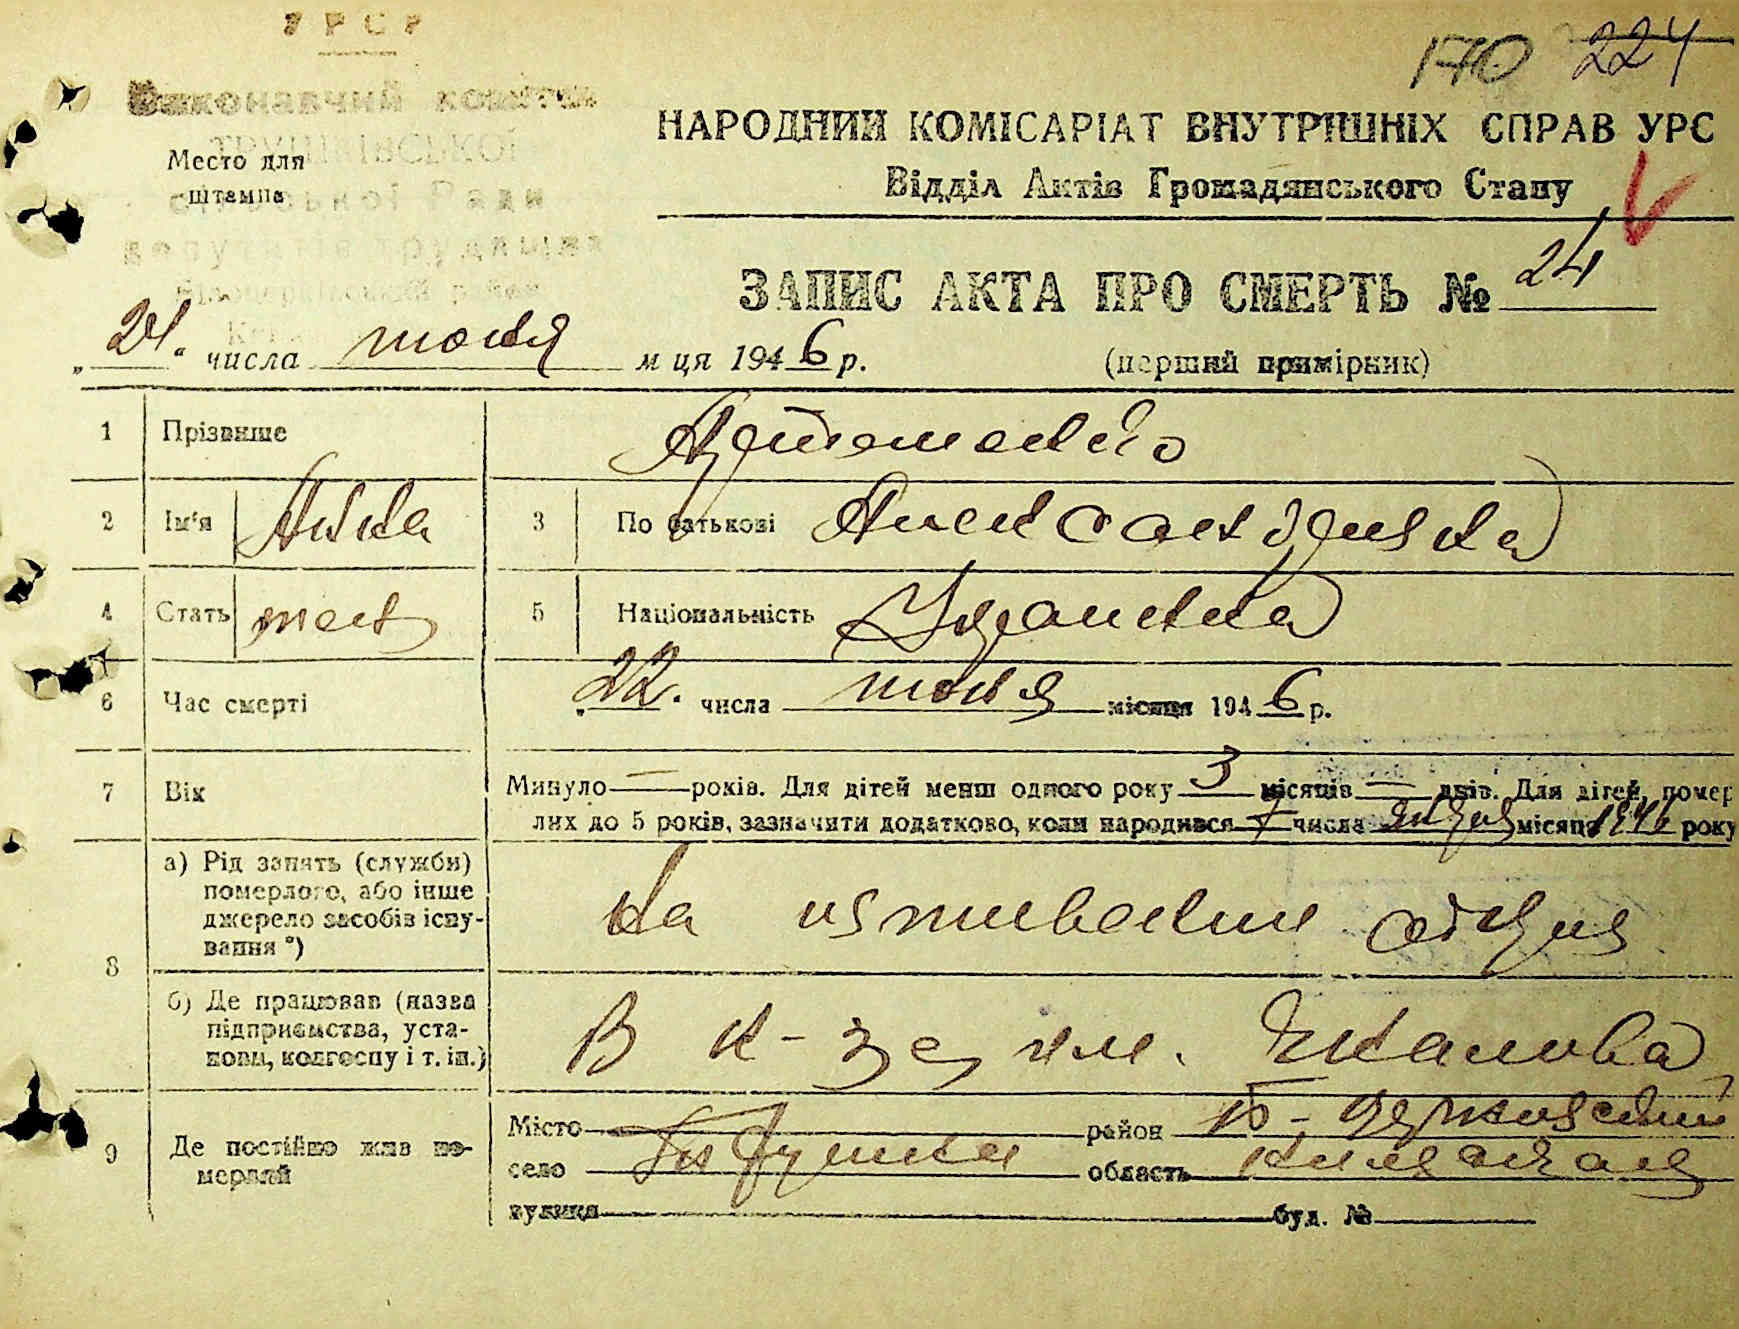 УРСР
170 224
Виконавчий комітет
ТРУШКІВСЬКОЇ
сільської Ради
депутатів трудящих
Білоцерківський район
Место для
штампа
НАРОДНИЙ КОМІСАРІАТ ВНУТРІШНІХ СПРАВ УРС
Відділ Актів Громадянського Стану
ЗАПИС АКТА ПРО СМЕРТЬ № 24
„24“ числа июня м ця 1946 р.
(перший примірник)
1 Прізвище Артеменко
2 Ім'я Анна 3 По батькові Александрівна
4 Стать жен 5 Національність Украинка
6 Час смерті „22“ числа июня місяця 1946 р.
7 Вік Минуло — років. Для дітей менш одного року 3 місяців — днів. Для дітей, помер
лих до 5 років, зазначити додатково, коли народився числа місяця 1946 року
8 а) Рід занять (служби)
померлого, або інше
джерело засобів існу-
вання *)
На иждивении отця
б) Де працював (назва
підприємства, уста-
нови, колгоспу і т. ін.)
В к-зе им. Чкалова
9 Де постійно жив по-
мерлий
Місто район Б-Церковский
село Трушки область Киевская
вулиця буд. №